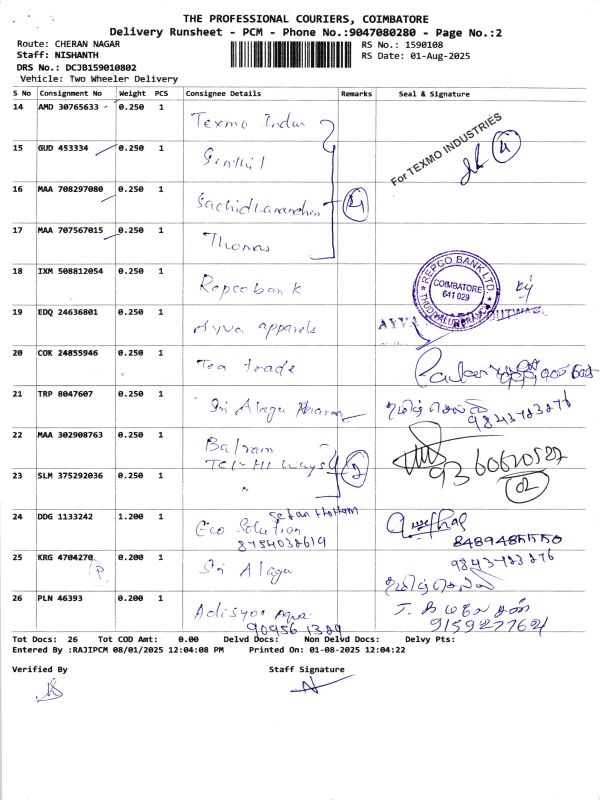 THE PROFESSIONAL COURIERS, COIMBATORE
Delivery Runsheet - PCM - Phone No.:9047080280 - Page No.:2
Route: CHERAN NAGAR RS No.: 1590108
Staff: NISHANTH RS Date: 01-Aug-2025
DRS No.: DCJB159010802
Vehicle: Two Wheeler Delivery
S No Consignment No Weight PCS Consignee Details Remarks Seal & Signature
14 AMD 30765633 0.250 1 Texmo Indus
For TEXMO INDUSTRIES
15 GUD 453334 0.250 1 Senthil 4
16 MAA 708297080 0.250 1 Sachidhanandhan 4
17 MAA 707567015 0.250 1 Thomas
18 IXM 508812054 0.250 1 Repcobank
REPCO BANK LTD
COIMBATORE
641 029
19 EDQ 24636801 0.250 1 Ayva apparels AYVA
20 COK 24855946 0.250 1 Tea trade
21 TRP 8047607 0.250 1 Sri Alagu Pharma தமிழ்செல்வி
9843723276
22 MAA 302908763 0.250 1 Balram
TCI-Hi Ways 2 9360620527
23 SLM 375292036 0.250 1 " 02
24 DDG 1133242 1.200 1 Eco Solution
8754032619 8489485550
25 KRG 4704270 0.200 1 Sri Alagu 9843723276
தமிழ்செல்வி
26 PLN 46393 0.200 1 Adisyos Aqua
9159277621
Tot Docs: 26 Tot COD Amt: 0.00 Delvd Docs: Non Delvd Docs: Delvy Pts:
Entered By :RAJIPCM 08/01/2025 12:04:08 PM Printed On: 01-08-2025 12:04:22
Verified By Staff Signature